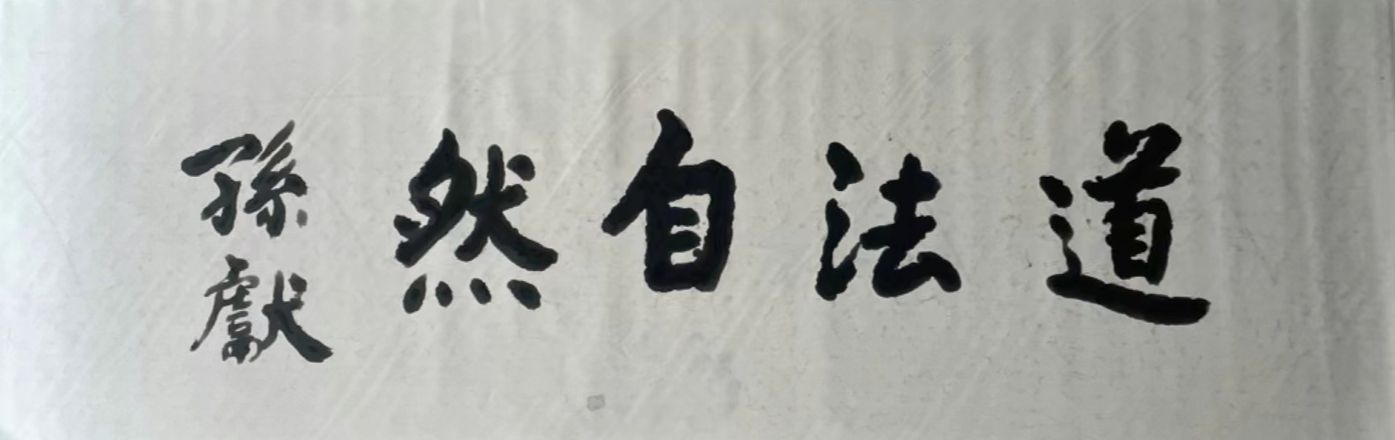 道法自然
孫獻